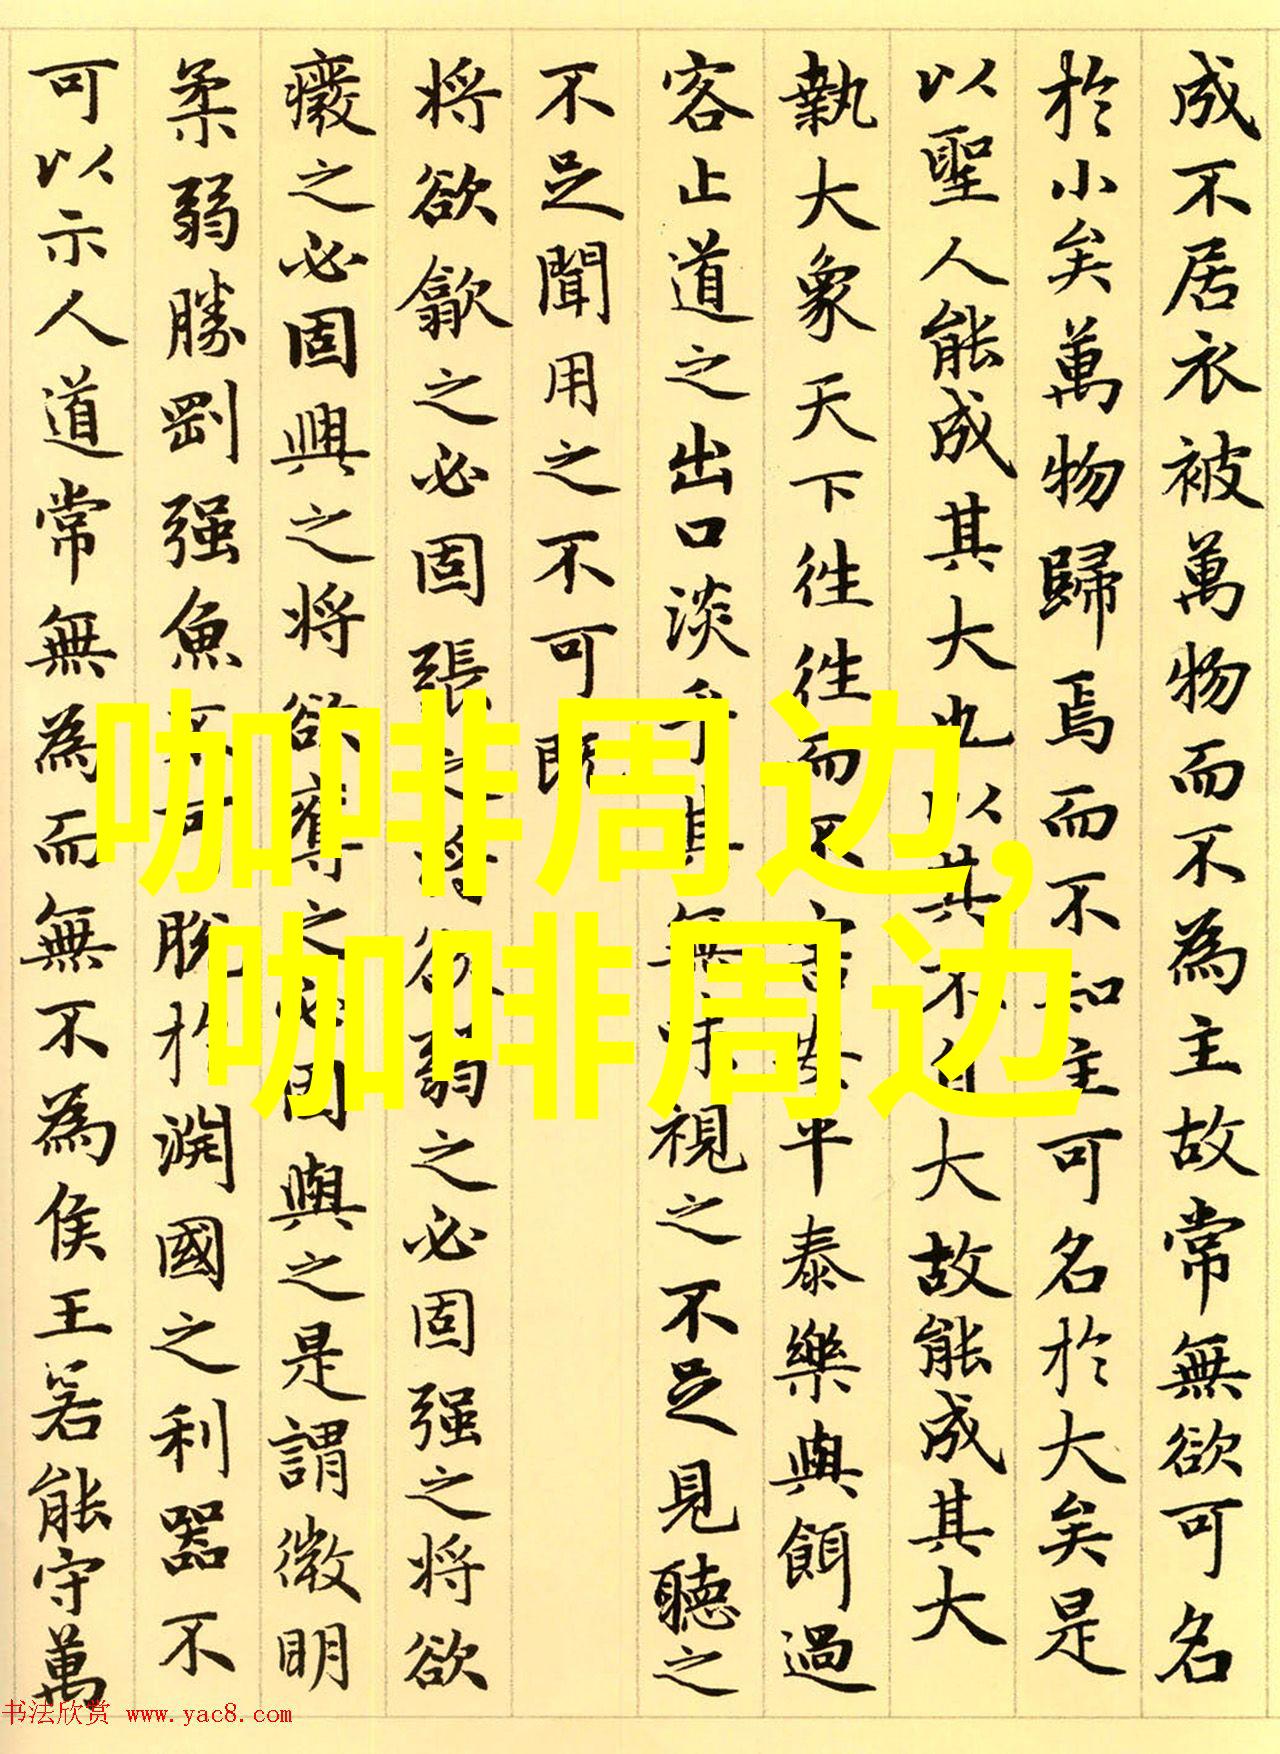 成不居衣被萬物而不為主故常無欲可名
於小矣萬物歸焉而不知主可名於大矣是
以聖人能成其大也以其不自大故能成其大
執大象天下往往而不害安平泰樂與餌過
客止道之出口淡乎其無味視之不足見聽之
不足聞用之不可既
將欲歙之必固張之將欲弱之必固强之將欲
癈之必固興之將欲奪之必固與之是謂微明
柔弱勝剛强魚不可脫於淵國之利器不
可以示人道常無為而無不為侯王若能守萬
咖啡周边,
咖啡周边
书法欣赏 www.yac8.com